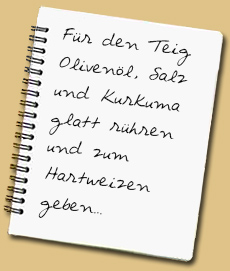 Für den Teig
Olivenöl, Salz
und Kurkuma
glatt rühren
und zum
Hartweizen
geben...